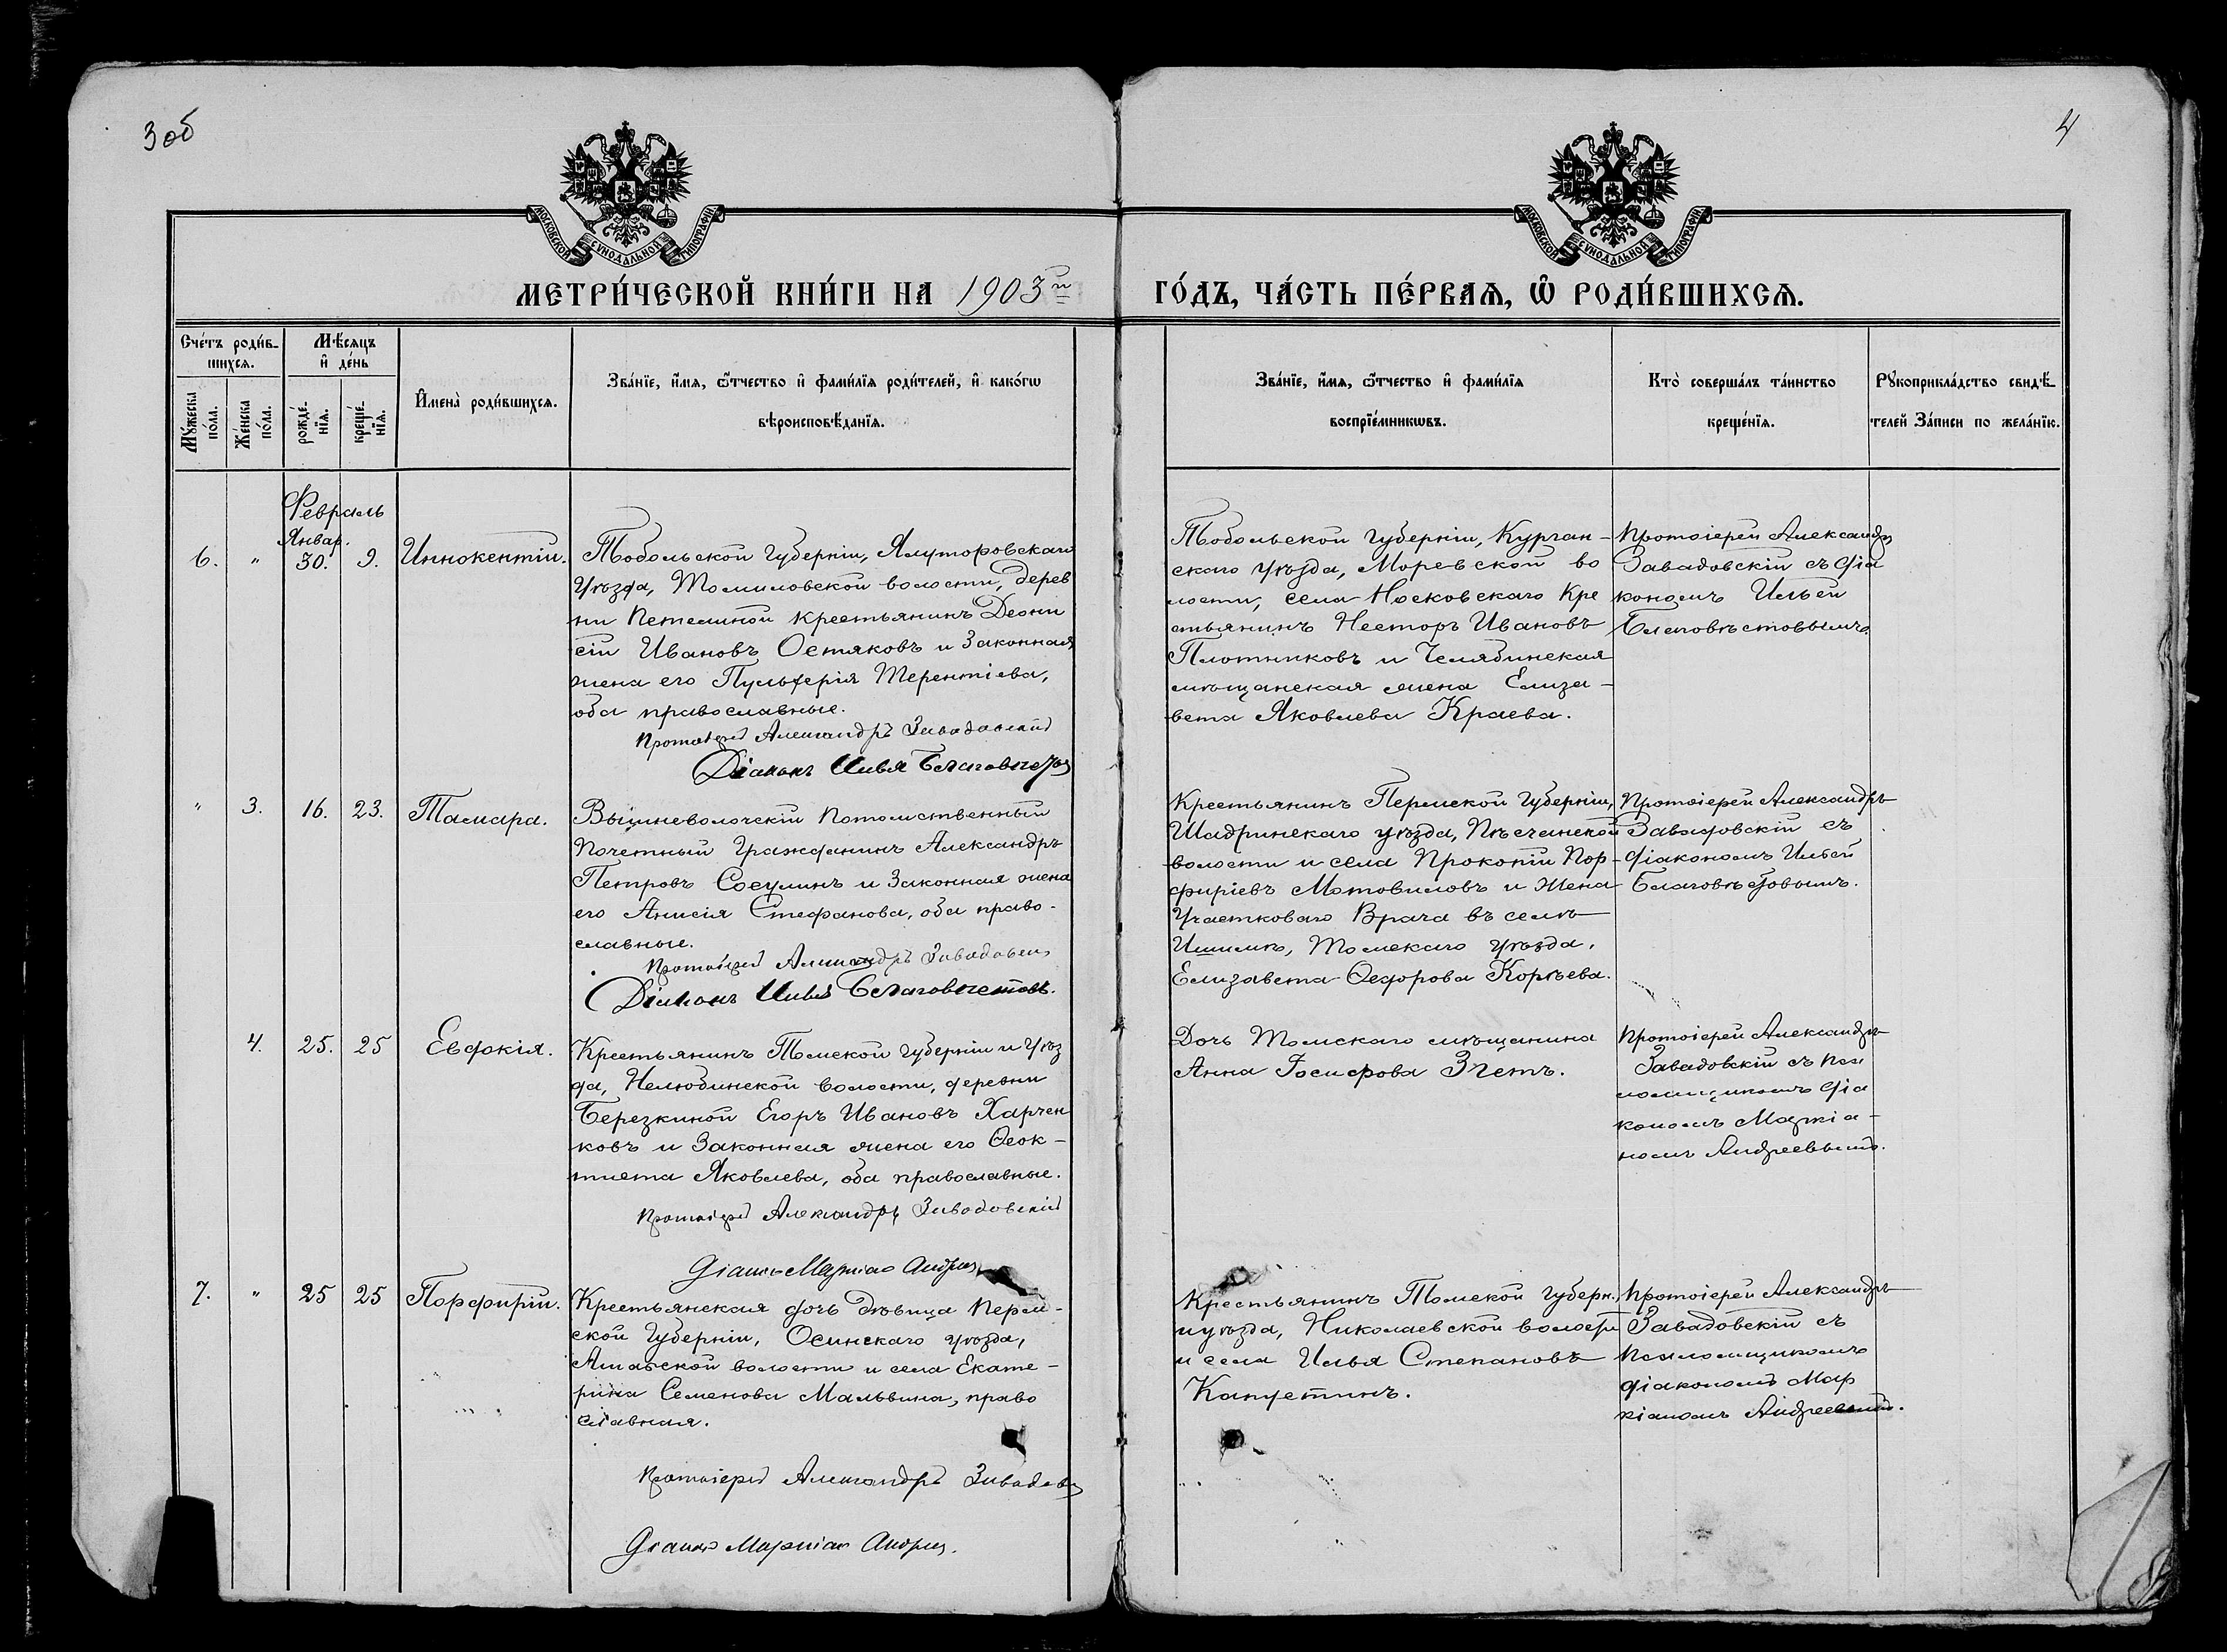 3 об
4
МОСКОВСКОЙ СѴНОДАЛЬНОЙ ТИПОГРАФІИ
МОСКОВСКОЙ СѴНОДАЛЬНОЙ ТИПОГРАФІИ
МЕТРИ́ЧЕСКОЙ КНИ́ГИ НА 1903й
ГО́ДЪ, ЧА́СТЬ ПЕ́РВАѦ, Ѡ҆ РОДИ́ВШИХСѦ.
Сче́тъ роди́в-
шихсѧ.
Мѣ́сѧцъ
и҆ де́нь
Мꙋ́жеска по́ла.
Же́нска по́ла.
рожде́-нїѧ.
креще́-нїѧ.
И҆мена̀ роди́вшихсѧ.
Зва́нїе, и҆́мѧ, ѻ҆́тчество и҆ фами́лїѧ роди́телей, и҆ како́гѡ
вѣроисповѣ́данїѧ.
Зва́нїе, и҆́мѧ, ѻ҆́тчество и҆ фами́лїѧ
воспрїе́мникѡвъ.
Кто̀ соверша́лъ та́инство
креще́нїѧ.
Рꙋкоприкла́дство свидѣ́-
телей за́писи по жела́нїю.
Февраль
Январ.
6. " 30. 9. Иннокентій.
Тобольской губерніи, Ялуторовскаго
уѣзда, Томиловской волости, дерев
ни Петелиной крестьянинъ Діони
сій Ивановъ Остяковъ и законная
жена его Пульхерія Терентіева,
оба православные.
Протоіерей Александръ Завадовскій
Діаконъ Илья Благовѣстовъ
Тобольской губерніи, Курган-
скаго уѣзда, Моревской во
лости, села Носковскаго кре
стьянинъ Несторъ Ивановъ
Плотниковъ и Челябинская
мѣщанская жена Елиза-
вета Яковлева Краева.
Протоіерей Александръ
Завадовскій съ діа
кономъ Ильей
Благовѣстовымъ.
" 3. 16. 23. Тамара.
Вышневолочскій потомственный
почетный гражданинъ Александръ
Петровъ Сосулинъ и законная жена
его Анисія Стефанова, оба право-
славные.
Протоіерей Александръ Завадовскій
Діаконъ Илья Благовѣстовъ.
Крестьянинъ Пермской губерніи,
Шадринскаго уѣзда, Пѣсчанской
волости и села Прокопій Пор-
фиріевъ Мотовиловъ и жена
участковаго врача въ селѣ
Ишимѣ, Томскаго уѣзда,
Елизавета Ѳедорова Корѣева.
Протоіерей Александръ
Завадовскій съ
діакономъ Ильей
Благовѣстовымъ.
4. 25. 25 Евдокія.
Крестьянинъ Томской губерніи и уѣз
да, Нелюбинской волости, деревни
Березкиной Егоръ Ивановъ Харчен
ковъ и законная жена его Ѳеок-
тиста Яковлева, оба православные.
Протоіерей Александръ Завадовскій
Діаконъ Маркіанъ Андреевъ
Дочь Томскаго мѣщанина
Анна Іосифова
Протоіерей Александръ
Завадовскій съ пса
ломщикомъ діа
кономъ Маркіа-
номъ Андреевымъ.
7. " 25 25 Порфирій.
Крестьянская дочь дѣвица Перм-
ской губерніи, Осинскаго уѣзда,
волости и села Екате-
рина Семенова Мальвина, право
славная.
Протоіерей Александръ Завадовскій
Діаконъ Маркіанъ Андреевъ.
Крестьянинъ Томской губерн.
и уѣзда, Николаевской волости
и села Илья Степановъ
Капустинъ.
Протоіерей Александръ
Завадовскій съ
псаломщикомъ
діакономъ Мар
кіаномъ Андреевымъ.